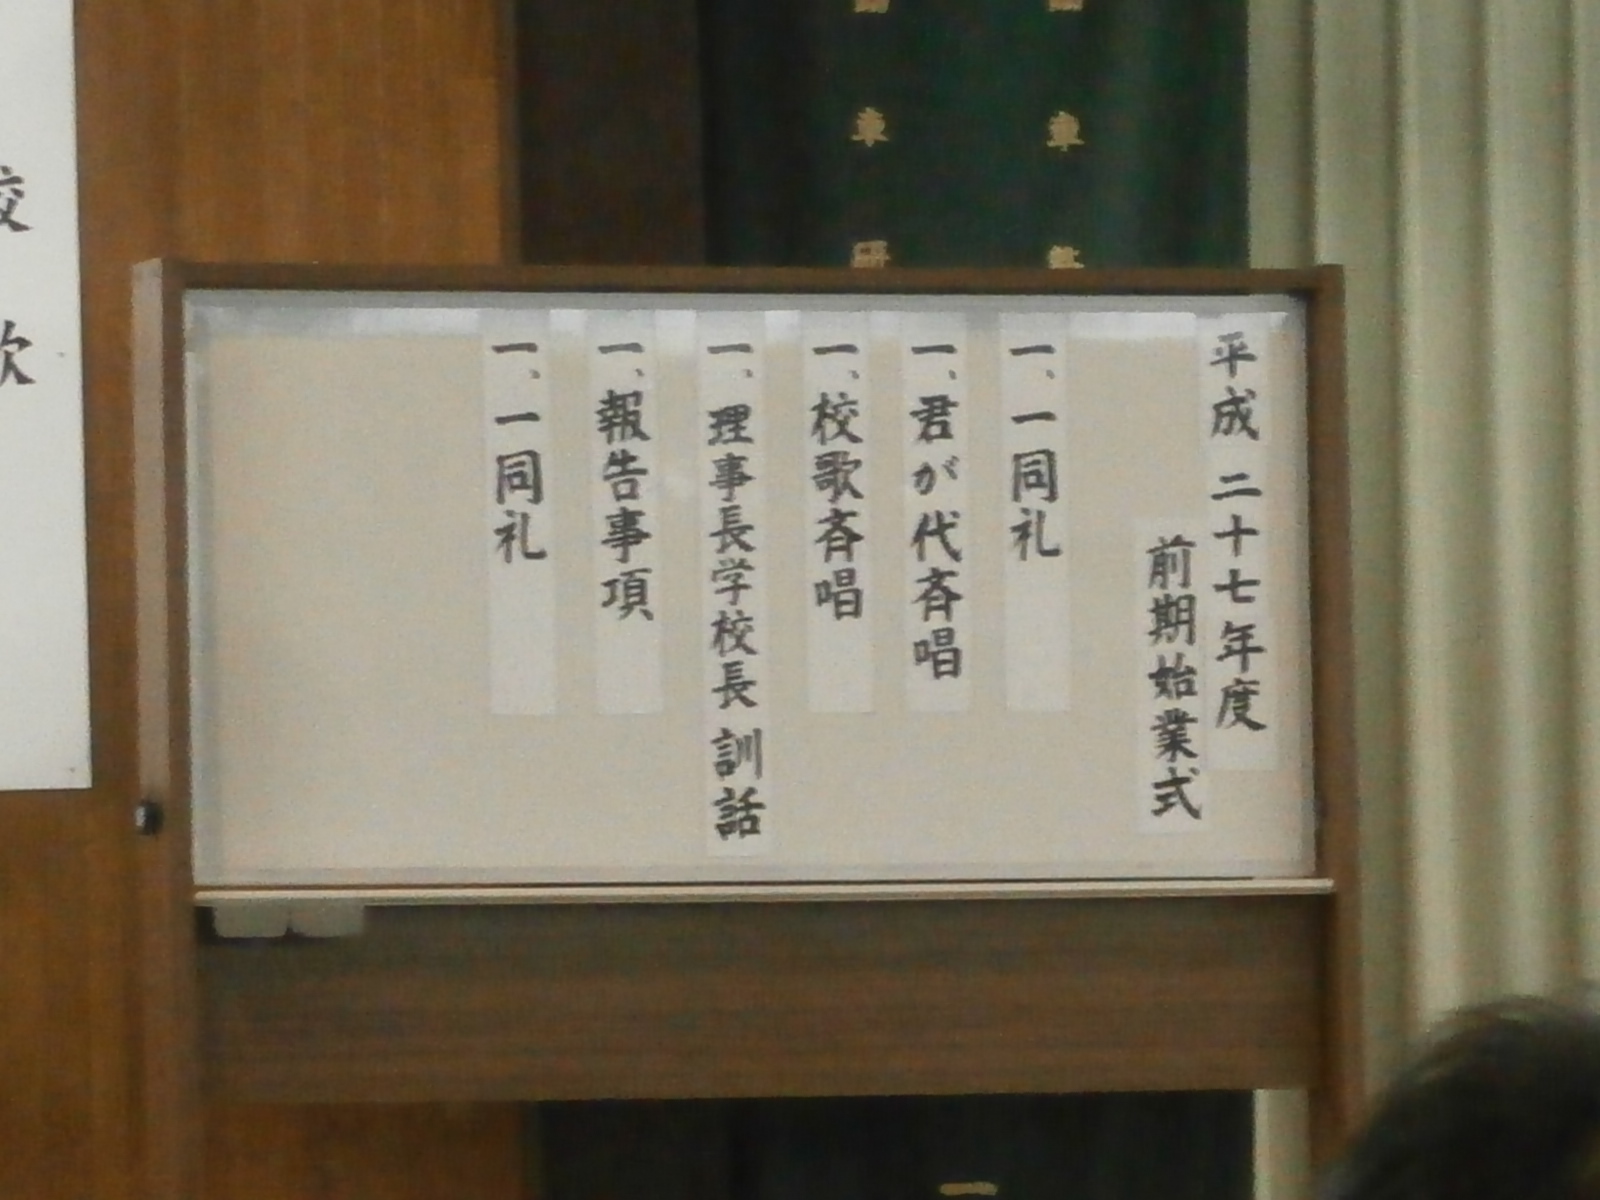 平成 二十七年度
前期始業式
一、一同礼
一、君が代斉唱
一、校歌斉唱
一、理事長学校長 訓話
一、報告事項
一、一同礼
車
車
校
歌